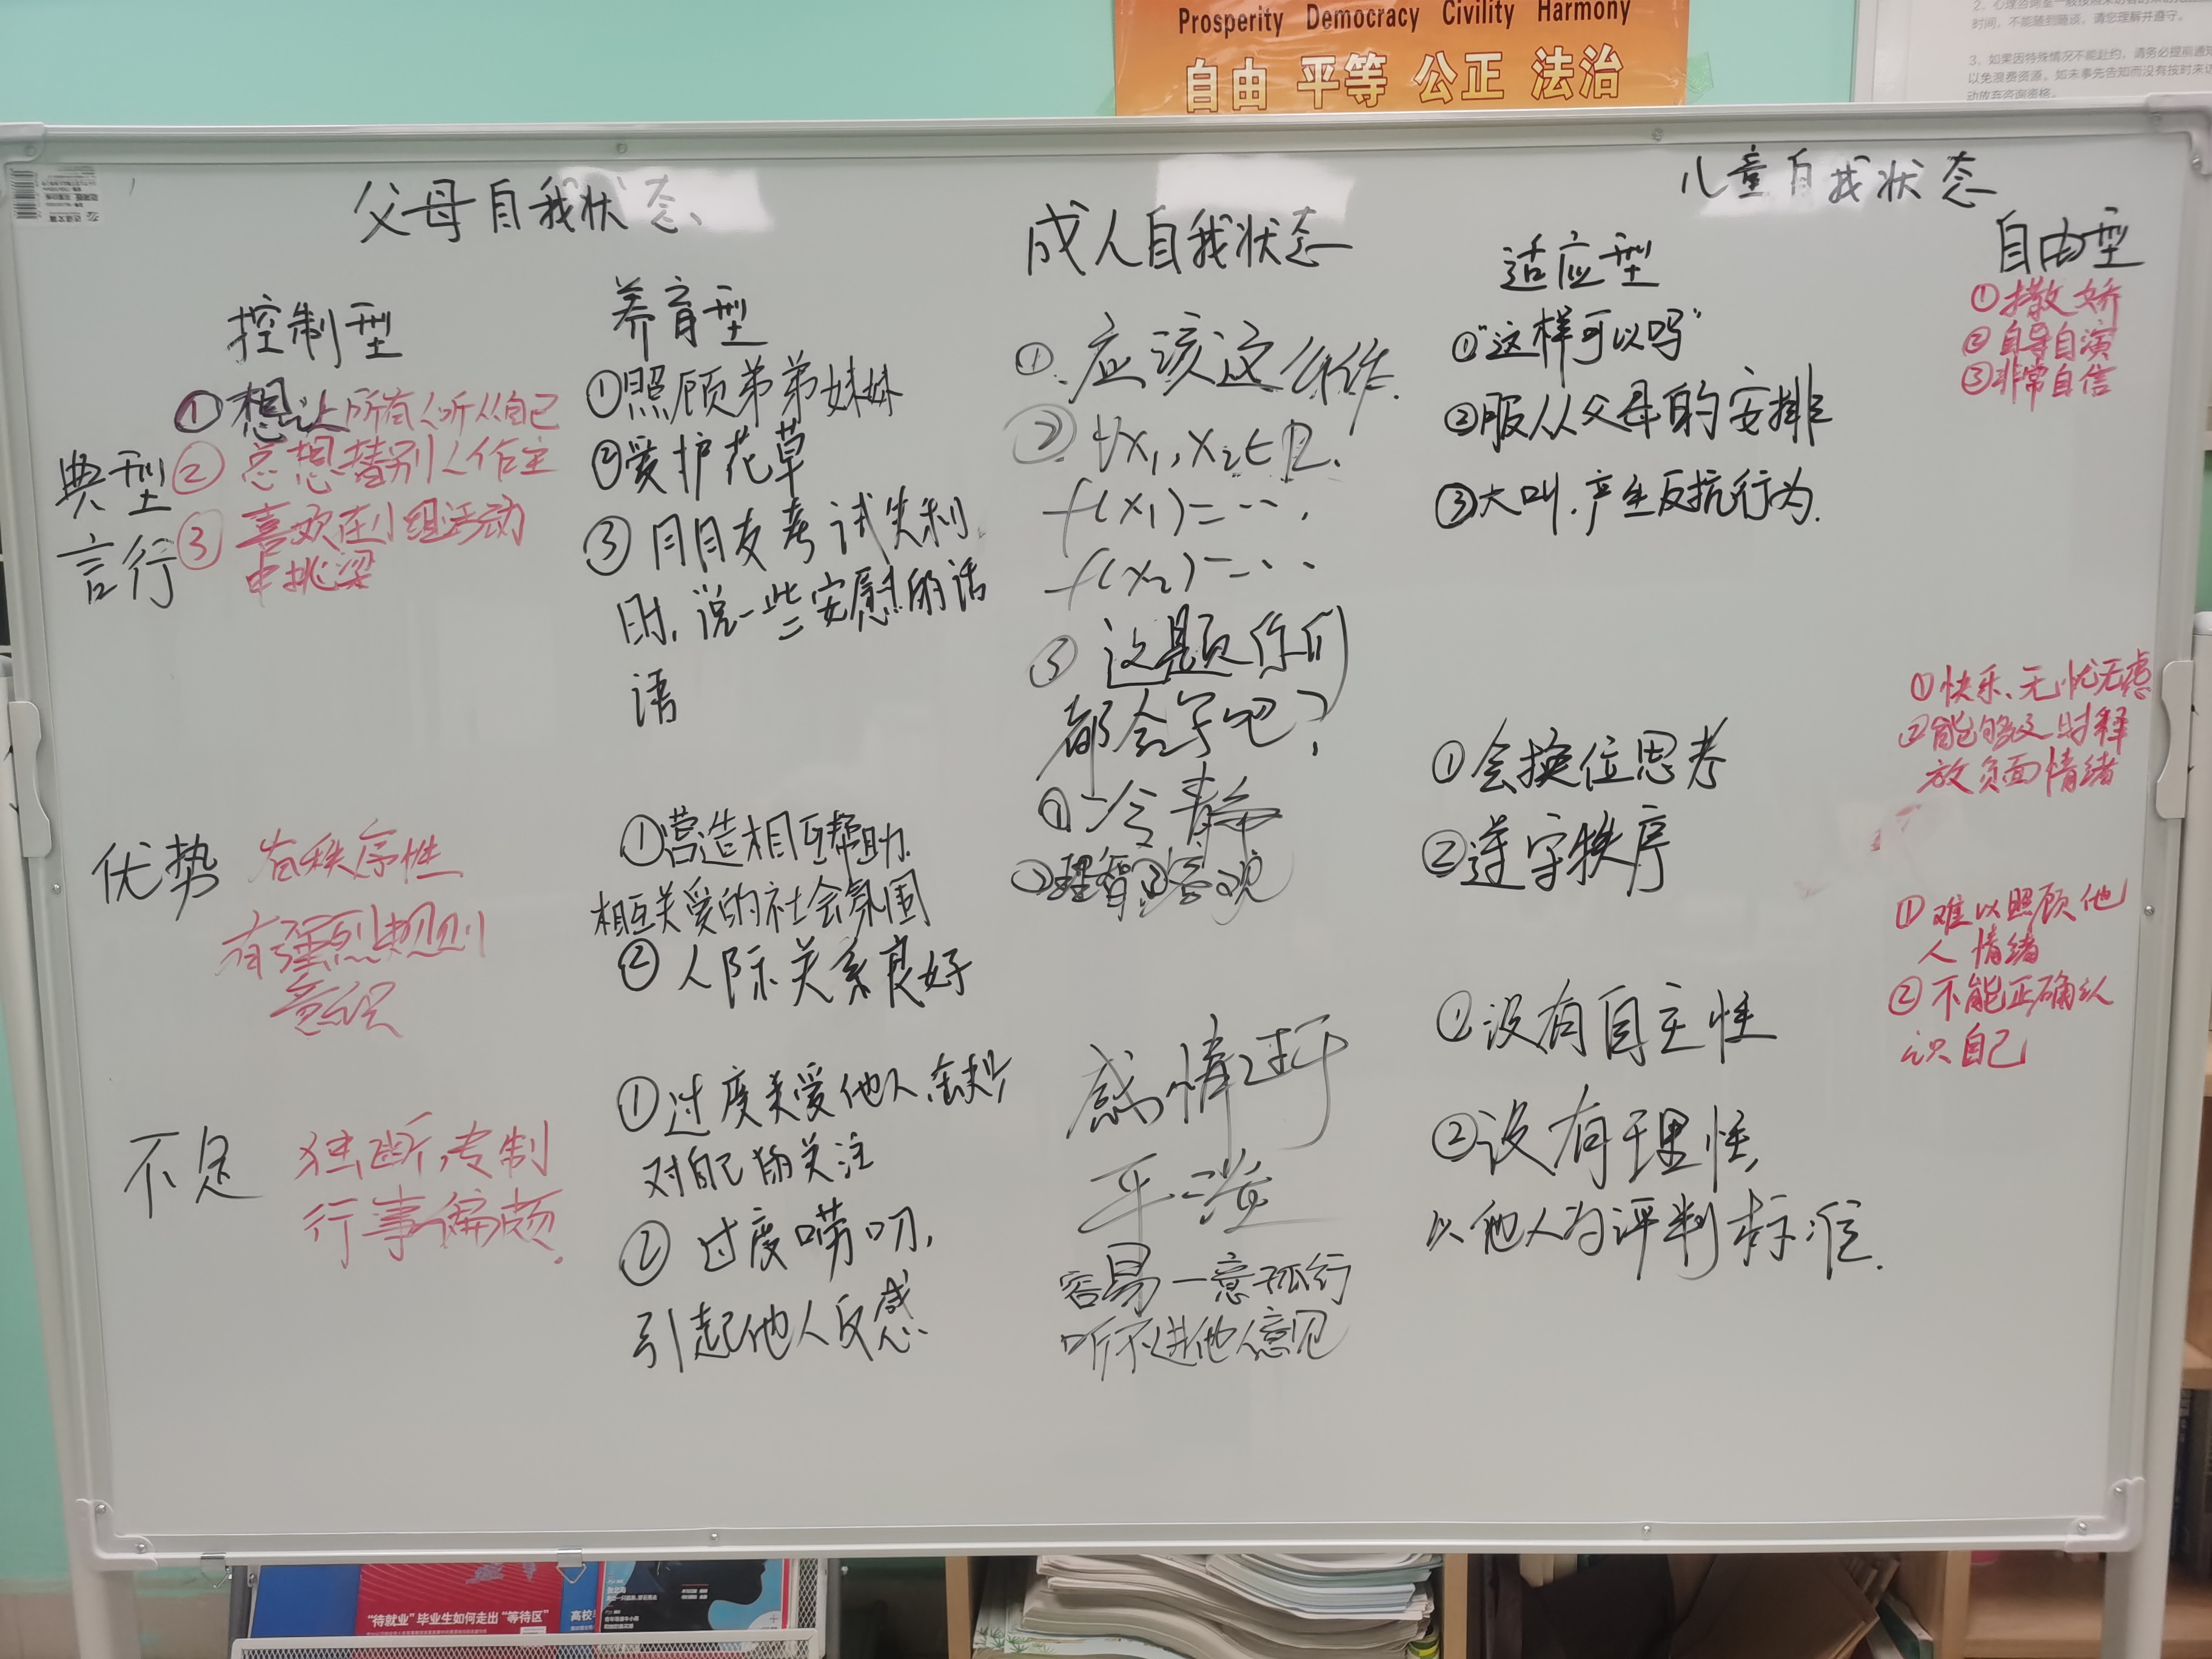 Prosperity Democracy Civility Harmony
自由 平等 公正 法治
时间，不能随到随谈，请您理解并遵守。
3、如果因特殊情况不能赴约，请务必提前通知
以免浪费资源。如未事先告知而没有按时来访
动放弃咨询资格。
父母自我状态
成人自我状态
儿童自我状态
控制型
养育型
适应型
自由型
典型
言行
①想让所有人听从自己
②总想替别人作主
③喜欢在小组活动
中挑梁
①照顾弟弟妹妹
②爱护花草
③朋友考试失利
时，说一些安慰的话
语
①应该这么作
②∀x₁,x₂∈R.
f(x₁)=…,
f(x₂)=…
③这题你们
都会写吧?
①“这样可以吗”
②服从父母的安排
③大叫.产生反抗行为.
①撒娇
②自导自演
③非常自信
优势
有秩序性
有强烈规则
意识
①营造相互帮助.
相互关爱的社会氛围
②人际关系良好
①冷静
②理智③客观
①会换位思考
②遵守秩序
①快乐、无忧无虑
②能够及时释
放负面情绪
不足
独断,专制
行事偏颇.
①过度关爱他人,缺少
对自己的关注
②过度唠叨,
引起他人反感
感情过于
平淡
容易一意孤行
听不进他人意见
①没有自主性
②没有理性,
以他人为评判标准.
①难以照顾他
人情绪
②不能正确认
识自己
“待就业”毕业生如何走出“等待区”
高校